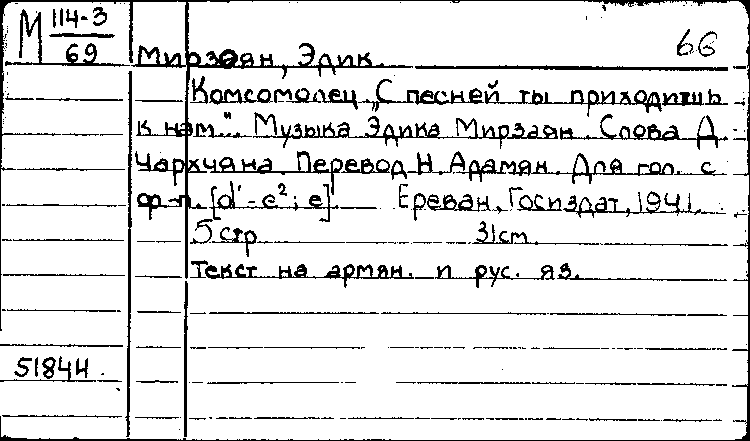 М 114-3
69
66
Мирзоян, Эдик.
Комсомолец. „С песней ты приходишь
к нам". Музыка Эдика Мирзоян. Слова Д.
Чархчяна. Перевод Н. Адамян. Для гол. с
ф-п. [d'-e²; e]. Ереван, Госиздат, 1941.
5 стр 31cm.
Текст на армян. и рус. яз.
51844.